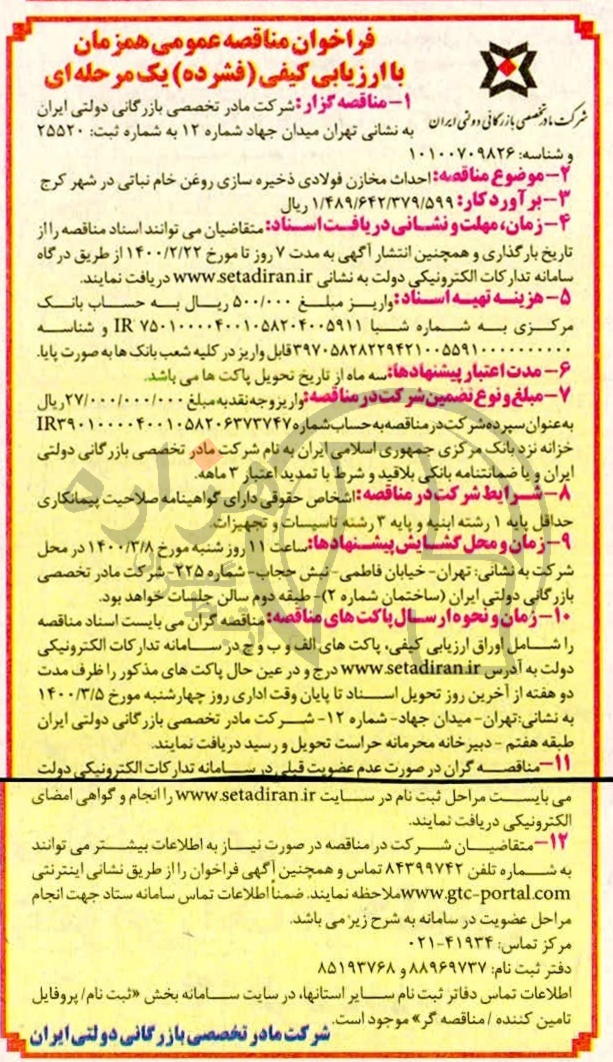 فراخوان مناقصه عمومی همزمان
با ارزیابی کیفی (فشرده) یک مرحله‌ای
شرکت مادر تخصصی بازرگانی دولتی ایران
۱- مناقصه گزار: شرکت مادر تخصصی بازرگانی دولتی ایران
به نشانی تهران میدان جهاد شماره ۱۲ به شماره ثبت: ۲۵۵۲۰
و شناسه: ۱۰۱۰۰۷۰۹۸۲۶
۲- موضوع مناقصه: احداث مخازن فولادی ذخیره سازی روغن خام نباتی در شهر کرج
۳- برآورد کار: ۱/۴۸۹/۶۴۲/۳۷۹/۵۹۹ ریال
۴- زمان، مهلت و نشانی دریافت اسناد: متقاضیان می توانند اسناد مناقصه را از
تاریخ بارگذاری و همچنین انتشار آگهی به مدت ۷ روز تا مورخ ۱۴۰۰/۲/۲۲ از طریق درگاه
سامانه تدارکات الکترونیکی دولت به نشانی www.setadiran.ir دریافت نمایند.
۵- هزینه تهیه اسناد: واریز مبلغ ۵۰۰/۰۰۰ ریال به حساب بانک
مرکزی به شماره شبا IR ۷۵۰۱۰۰۰۰۴۰۰۱۰۵۸۲۰۴۰۰۵۹۱۱ و شناسه
۳۹۷۰۵۸۲۸۲۲۹۴۲۱۰۰۵۵۹۱۰۰۰۰۰۰۰۰۰۰ قابل واریز در کلیه شعب بانک ها به صورت پایا.
۶- مدت اعتبار پیشنهادها: سه ماه از تاریخ تحویل پاکت ها می باشد.
۷- مبلغ و نوع تضمین شرکت در مناقصه: واریز وجه نقد به مبلغ ۲۷/۰۰۰/۰۰۰/۰۰۰ ریال
به عنوان سپرده شرکت در مناقصه به حساب شماره IR۳۹۰۱۰۰۰۰۴۰۰۱۰۵۸۲۰۶۳۷۳۷۴۷
خزانه نزد بانک مرکزی جمهوری اسلامی ایران به نام شرکت مادر تخصصی بازرگانی دولتی
ایران و یا ضمانتنامه بانکی بلاقید و شرط با تمدید اعتبار ۳ ماهه.
۸- شرایط شرکت در مناقصه: اشخاص حقوقی دارای گواهینامه صلاحیت پیمانکاری
حداقل پایه ۱ رشته ابنیه و پایه ۳ رشته تاسیسات و تجهیزات.
۹- زمان و محل گشایش پیشنهادها: ساعت ۱۱ روز شنبه مورخ ۱۴۰۰/۳/۸ در محل
شرکت به نشانی: تهران- خیابان فاطمی- نبش حجاب- شماره ۲۲۵- شرکت مادر تخصصی
بازرگانی دولتی ایران (ساختمان شماره ۲)- طبقه دوم سالن جلسات خواهد بود.
۱۰- زمان و نحوه ارسال پاکت های مناقصه: مناقصه گران می بایست اسناد مناقصه
را شامل اوراق ارزیابی کیفی، پاکت های الف و ب و ج در سامانه تدارکات الکترونیکی
دولت به آدرس www.setadiran.ir درج و در عین حال پاکت های مذکور را ظرف مدت
دو هفته از آخرین روز تحویل اسناد تا پایان وقت اداری روز چهارشنبه مورخ ۱۴۰۰/۳/۵
به نشانی: تهران- میدان جهاد- شماره ۱۲- شرکت مادر تخصصی بازرگانی دولتی ایران
طبقه هفتم - دبیرخانه محرمانه حراست تحویل و رسید دریافت نمایند.
۱۱- مناقصه گران در صورت عدم عضویت قبلی در سامانه تدارکات الکترونیکی دولت
می بایست مراحل ثبت نام در سایت www.setadiran.ir را انجام و گواهی امضای
الکترونیکی دریافت نمایند.
۱۲- متقاضیان شرکت در مناقصه در صورت نیاز به اطلاعات بیشتر می توانند
به شماره تلفن ۸۴۳۹۹۷۴۲ تماس و همچنین آگهی فراخوان را از طریق نشانی اینترنتی
www.gtc-portal.com ملاحظه نمایند. ضمنا اطلاعات تماس سامانه ستاد جهت انجام
مراحل عضویت در سامانه به شرح زیر می باشد.
مرکز تماس: ۴۱۹۳۴-۰۲۱
دفتر ثبت نام: ۸۸۹۶۹۷۳۷ و ۸۵۱۹۳۷۶۸
اطلاعات تماس دفاتر ثبت نام سایر استانها، در سایت سامانه بخش «ثبت نام/ پروفایل
تامین کننده / مناقصه گر» موجود است.
شرکت مادر تخصصی بازرگانی دولتی ایران